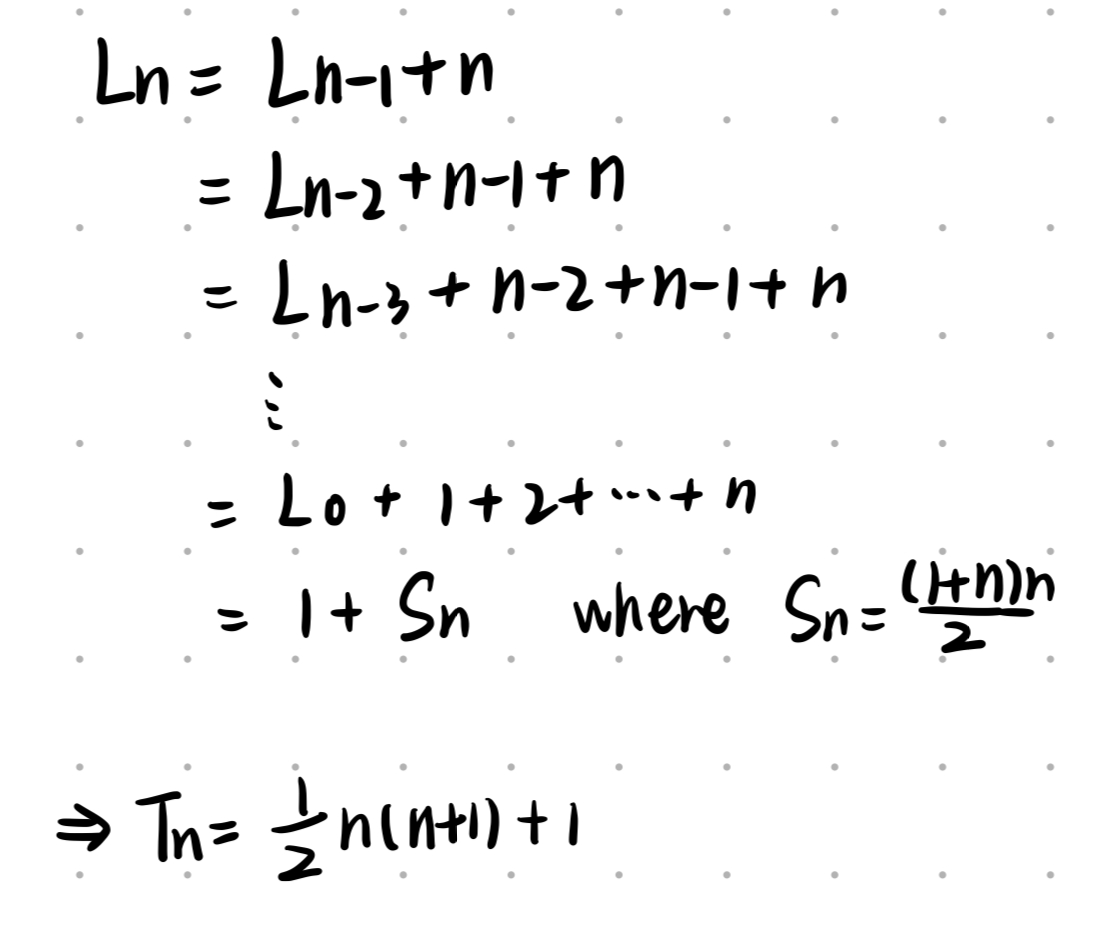 Ln = Ln-1 + n
= Ln-2 + n-1 + n
= Ln-3 + n-2 + n-1 + n
⋮
= L0 + 1 + 2 + ⋯ + n
= 1 + Sn where Sn = (1+n)n/2
⇒ Tn = 1/2 n(n+1) + 1